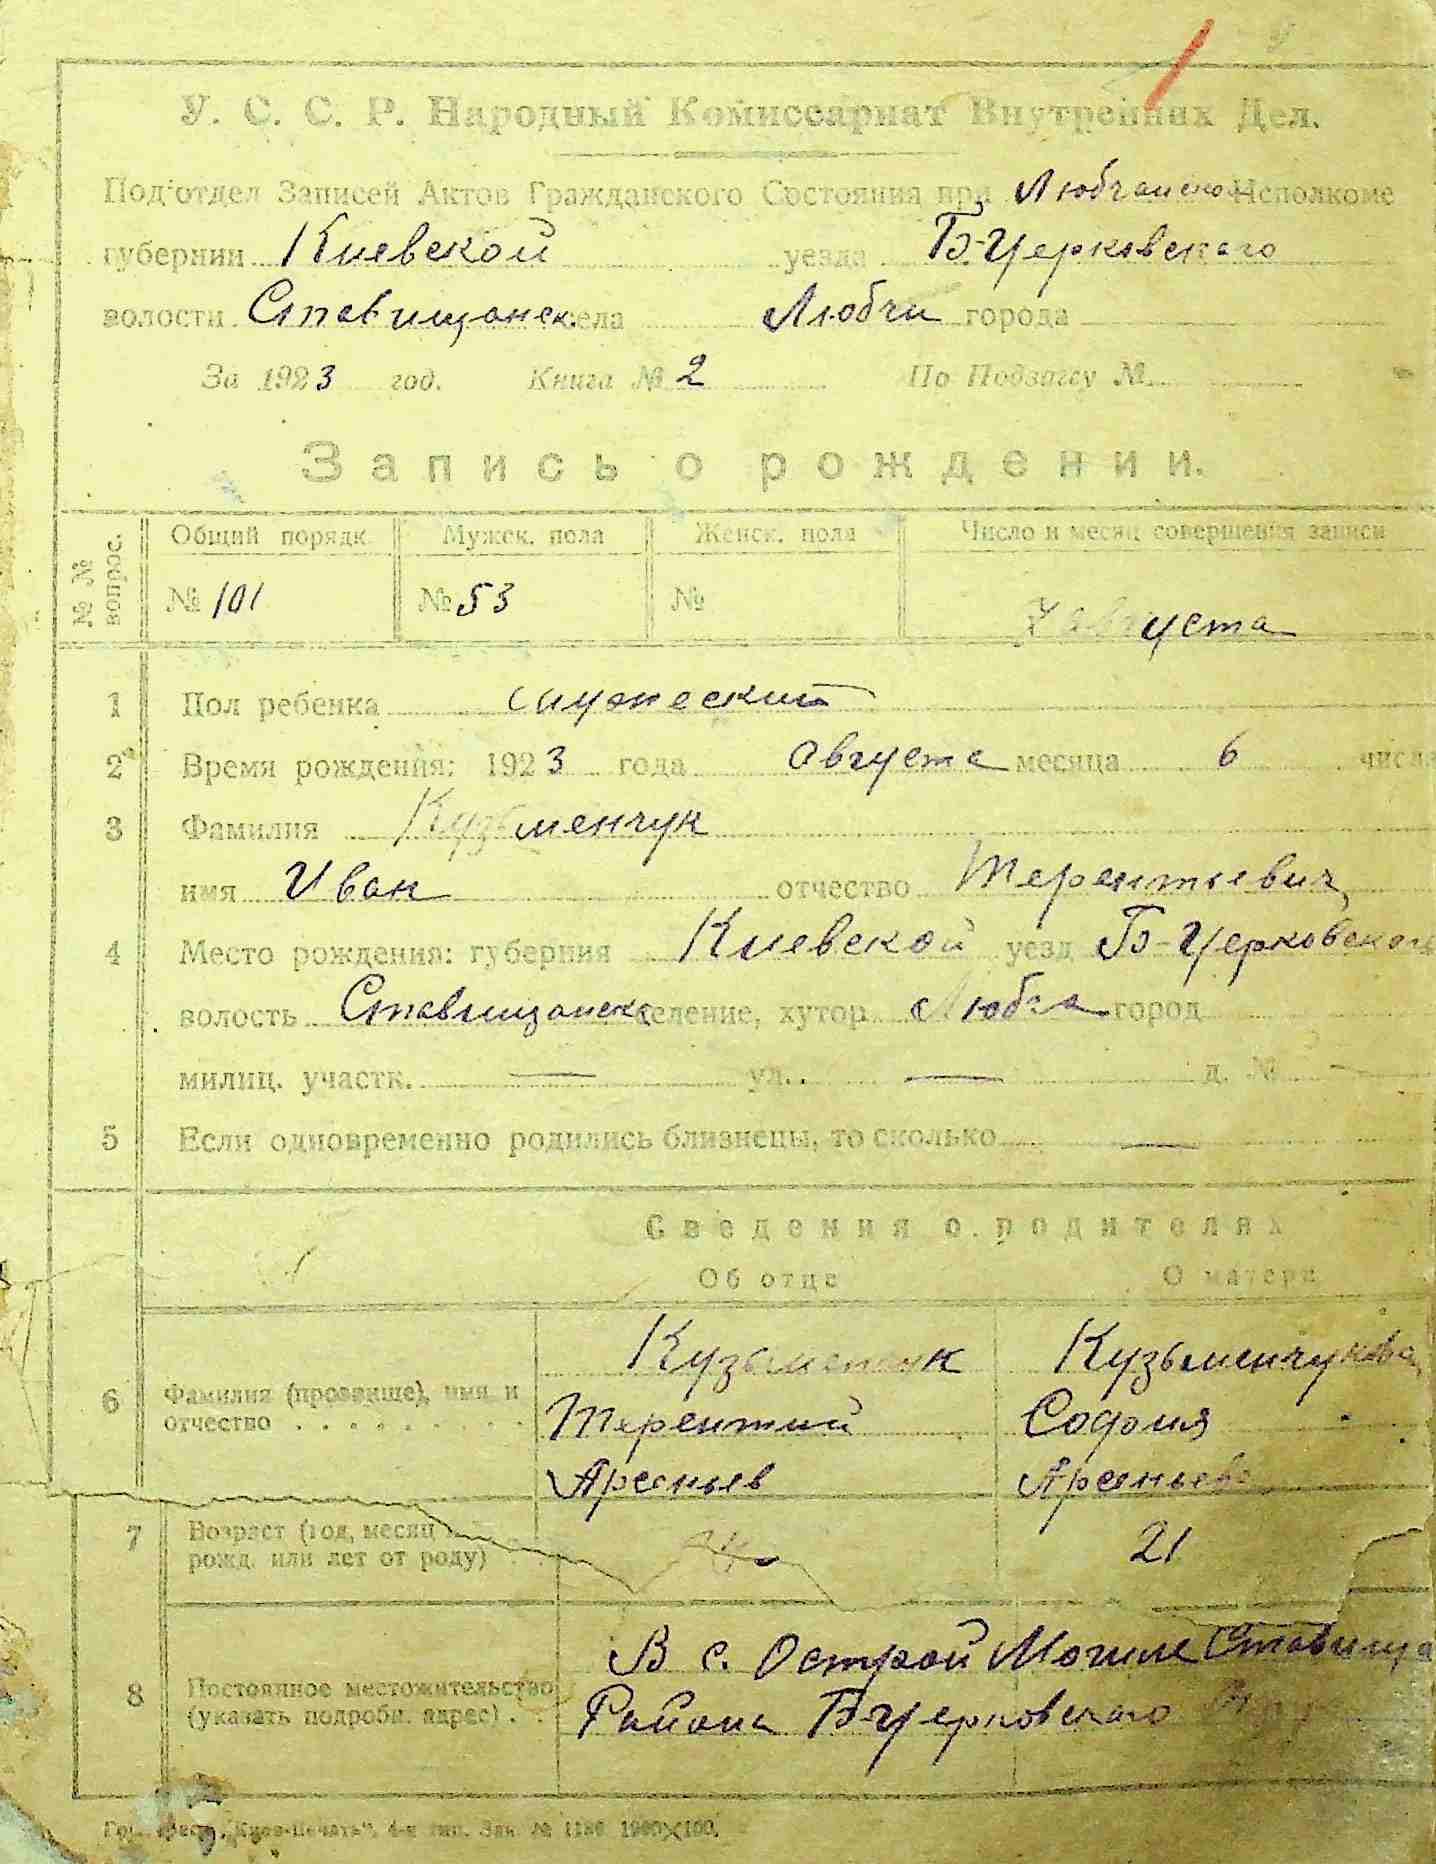 У. С. С. Р. Народный Комиссариат Внутренних Дел.
Подотдел Записей Актов Гражданского Состояния при Исполкоме
губернии Киевской уезда Б-Церковского
волости Ставищанск. села Любчи города
За 1923 год. Книга № 2 По Подзагсу №
Запись о рождении.
№ № вопрос. Общий порядк. Мужск. пола Женск. пола Число и месяц совершения записи
№ 101 № 53 № 7 августа
1 Пол ребенка
2 Время рождения: 1923 года августа месяца 6 числа
3 Фамилия Кузьменчук
имя Иван отчество Терентьевич
4 Место рождения: губерния Киевской уезд Б-Церковского
волость Ставищанск селение, хутор Любча город
милиц. участк. — ул. — д. № —
5 Если одновременно родились близнецы, то сколько —
Сведения о родителях
Об отце О матери
Кузьменчук Кузьменчукова
6 Фамилия (прозвище), имя и отчество Терентий София
Арсеньев Арсеньева
7 Возраст (год, месяц рожд. или лет от роду) 21
8 Постоянное местожительство (указать подробн. адрес) В с. Острой Могиле Ставища
Района Б-Церковского
"Киев-Печать", 4-я тип. Зак. №